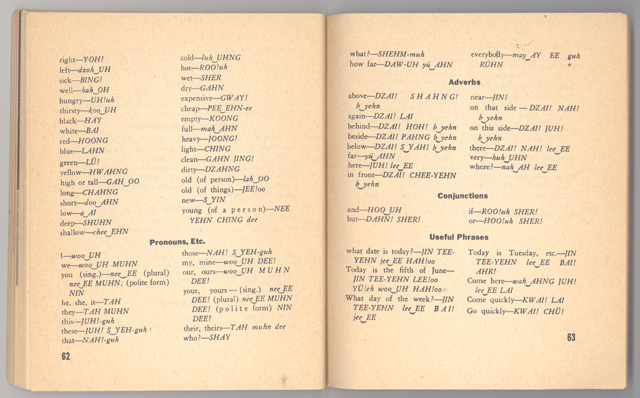 right—YOH!
left—dzoh‿UH
sick—BING!
well—hah‿OH
hungry—UH!uh
thirsty—koo‿UH
black—HAY
white—BAI
red—HOONG
blue—LAHN
green—LÜ!
yellow—HWAHNG
high or tall—GAH‿OO
long—CHAHNG
short—doo‿AHN
low—a‿AI
deep—SHUHN
shallow—chee‿EHN
cold—luh‿UHNG
hot—ROO!uh
wet—SHER
dry—GAHN
expensive—GWAY!
cheap—PEE‿EHN-ee
empty—KOONG
full—mah‿AHN
heavy—JOONG!
light—CHING
clean—GAHN JING!
dirty—DZAHNG
old (of person)—lah‿OO
old (of things)—JEE!oo
new—S‿YIN
young (of a person)—NEE
YEHN CHING dee
Pronouns, Etc.
I—woo‿UH
we—woo‿UH MUHN
you (sing.)—nee‿EE (plural)
nee‿EE MUHN; (polite form)
NIN
he, she, it—TAH
they—TAH MUHN
this—JUH!-guh
these—JUH! S‿YEH-guh
that—NAH!-guh
those—NAH! S‿YEH-guh
my, mine—woo‿UH DEE!
our, ours—woo‿UH MUHN
DEE!
your, yours—(sing.) nee‿EE
DEE! (plural) nee‿EE MUHN
DEE! (polite form) NIN
DEE!
their, theirs—TAH muhn dee
who?—SHAY
62
what?—SHEHM-muh
how far—DAW-UH yü‿AHN
everybody—may‿AY EE guh
RÜHN
Adverbs
above—DZAI! SHAHNG!
b‿yehn
again—DZAI! LAI
behind—DZAI! HOH! b‿yehn
beside—DZAI! PAHNG b‿yehn
below—DZAI! S‿YAH! b‿yehn
far—yü‿AHN
here—JUH! lee‿EE
in front—DZAI! CHEE-YEHN
b‿yehn
near—JIN!
on that side—DZAI! NAH!
b‿yehn
on this side—DZAI! JUH!
b‿yehn
there—DZAI! NAH! lee‿EE
very—huh‿UHN
where?—nah‿AH lee‿EE
Conjunctions
and—HOO‿UH
but—DAHN! SHER!
if—ROO!uh SHER!
or—HOO!uh SHER!
Useful Phrases
what date is today?—JIN TEE-
YEHN jee‿EE HAH!oo
Today is the fifth of June—
JIN TEE-YEHN LEE!oo
YÜ!eh woo‿UH HAH!oo
What day of the week?—JIN
TEE-YEHN lee‿EE BAI!
jee‿EE
Today is Tuesday, etc.—JIN
TEE-YEHN lee‿EE BAI!
AHR!
Come here—wah‿AHNG JUH!
lee‿EE LAI
Come quickly—KWAI! LAI
Go quickly—KWAI! CHÜ!
63